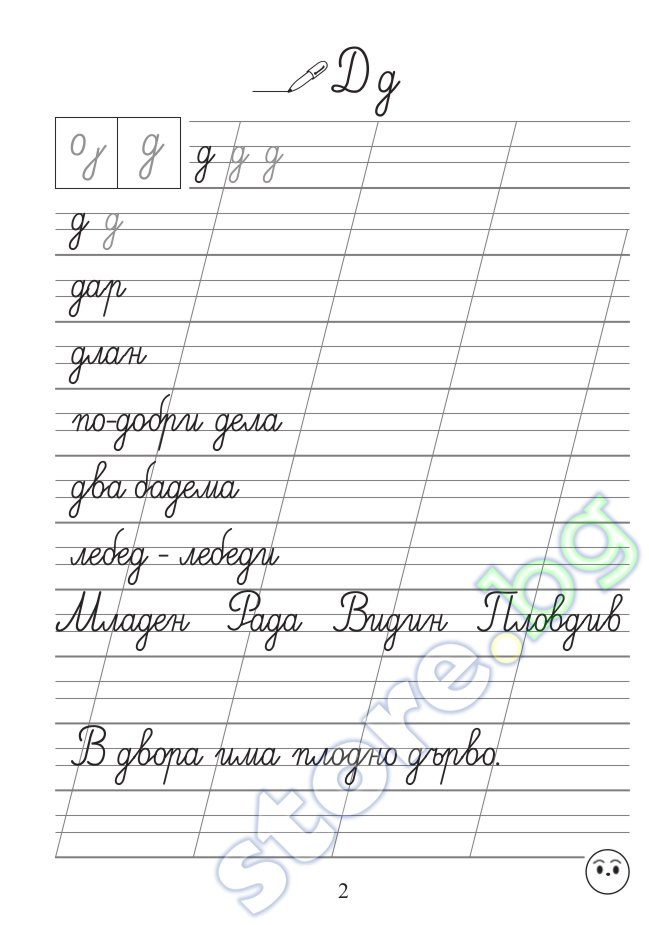 Д д
д д д д
д д
дар
длан
по-добри дела
два бадема
лебед - лебеди
Младен Рада Видин Пловдив
В двора има плодно дърво.
store.bg
2